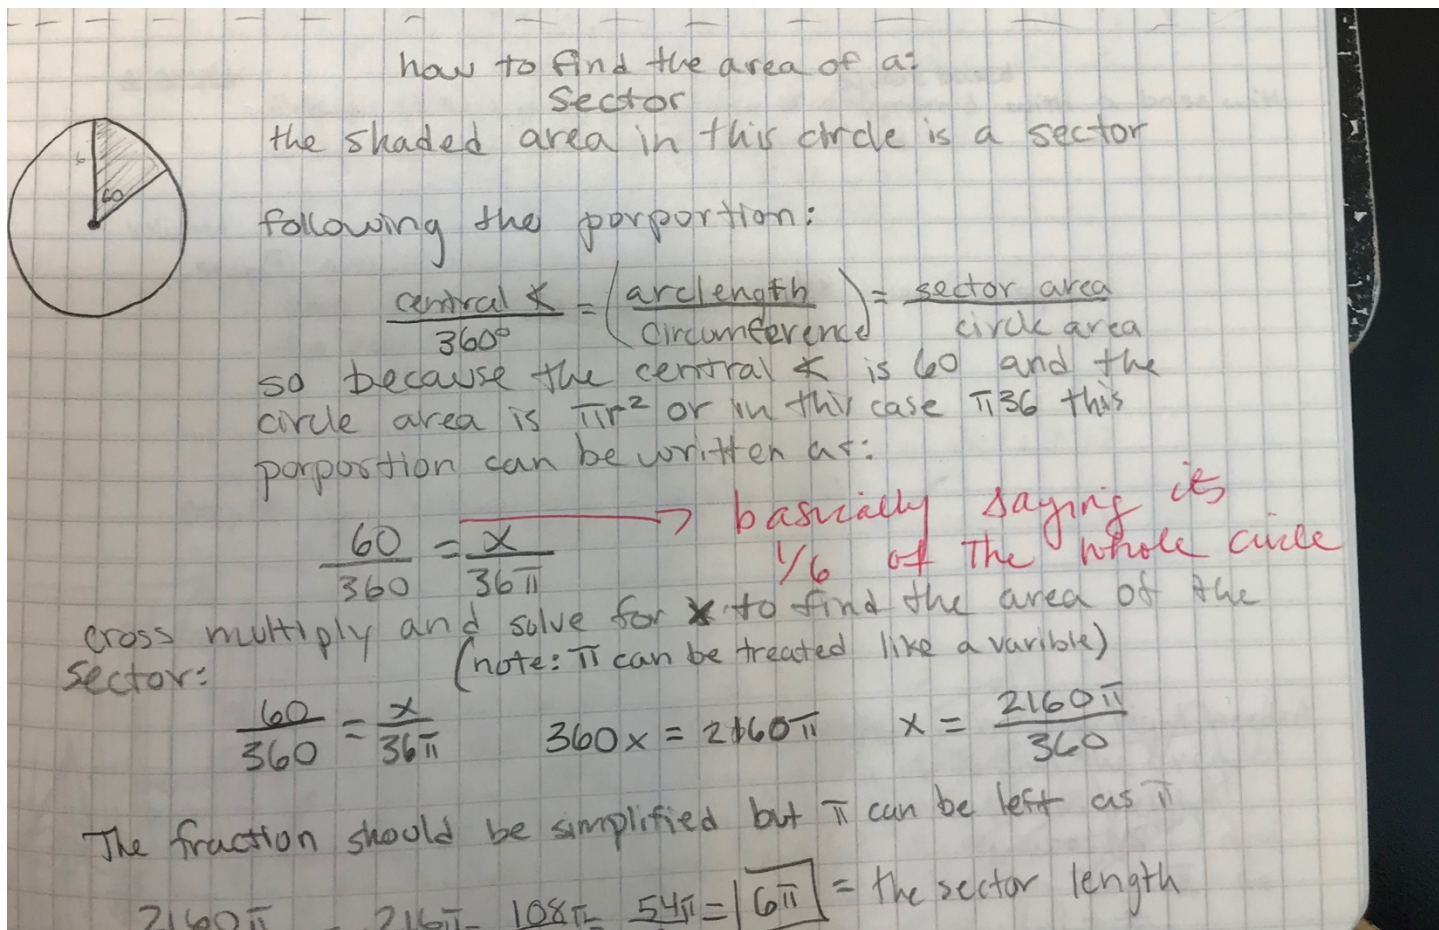 how to find the area of a:
sector
the shaded area in this circle is a sector
6
60
following the porportion:
central ∢/360° = (arclength/circumference) = sector area/circle area
so because the central ∢ is 60 and the
circle area is πr² or in this case π36 this
porportion can be written as:
60/360 = x/36π → basically saying its
1/6 of the whole circle
cross multiply and solve for x to find the area of the
sector: (note: π can be treated like a varible)
60/360 = x/36π 360x = 2160π x = 2160π/360
The fraction should be simplified but π can be left as π
2160π = 216π = 108π = 54π = 6π = the sector length